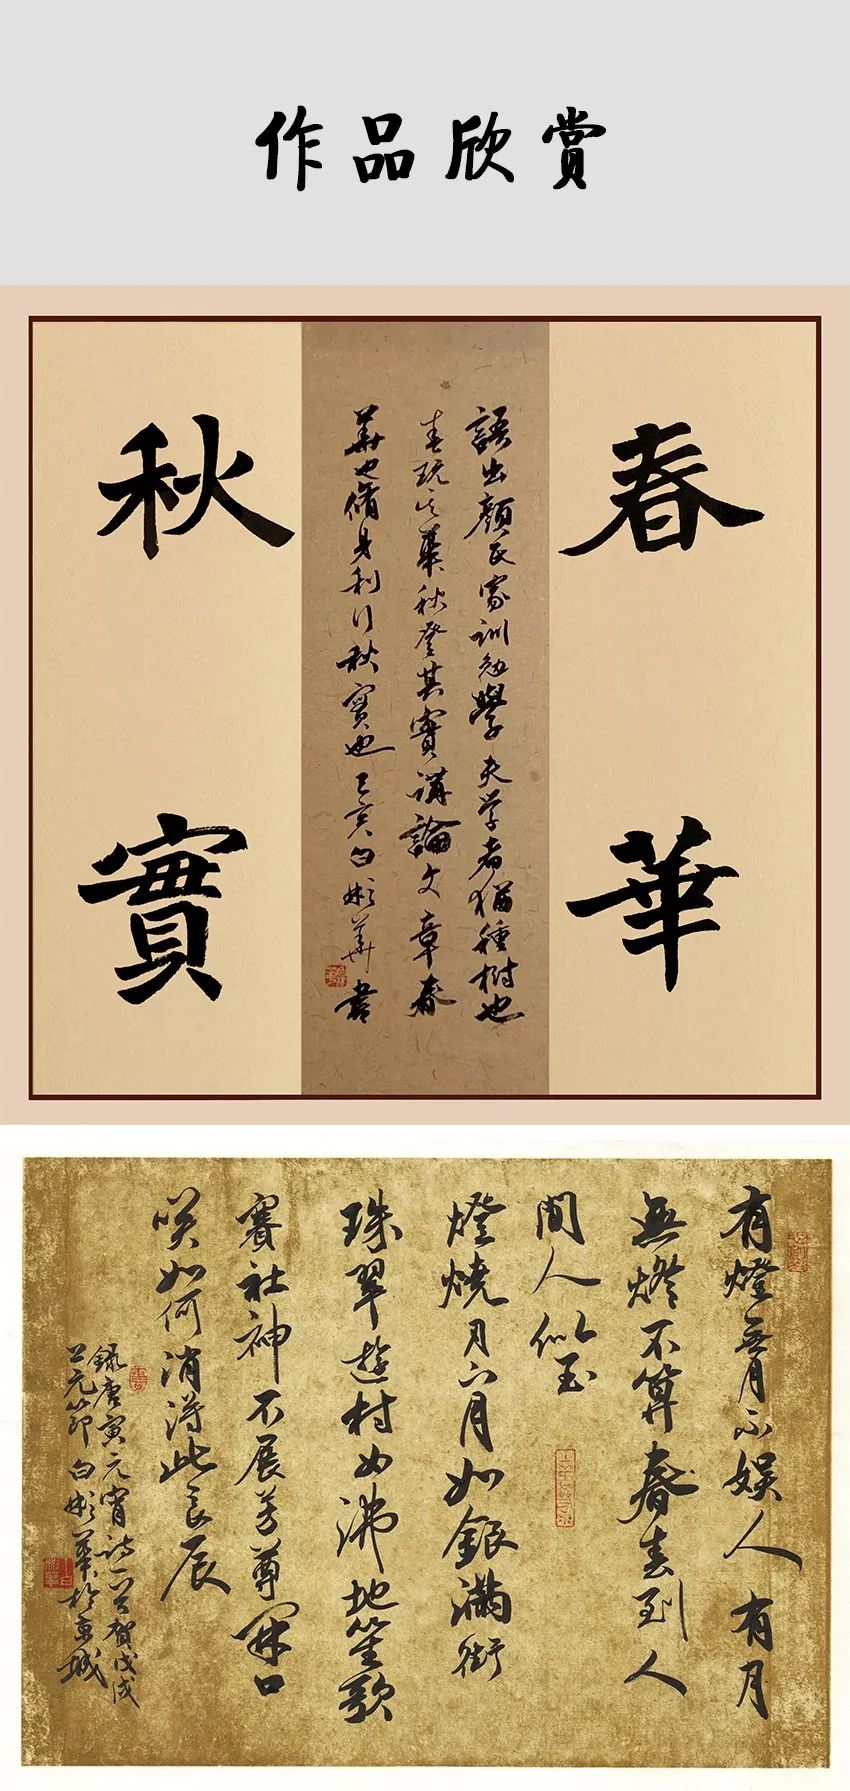 作品欣賞
春華
語出顏氏家訓勉學夫学者猶種樹也
春玩其華秋登其實講論文章春
華也脩身利行秋實也己亥白彬華書
秋實
有燈無月不娛人有月
無燈不算春春到人
間人似玉
燈燒月下月如銀滿街
珠翠遊村女沸地笙歌
賽社神不展芳尊開口
笑如何消得此良辰
錄唐寅元宵詩一首賀戊戌
上元節白彬華於京城